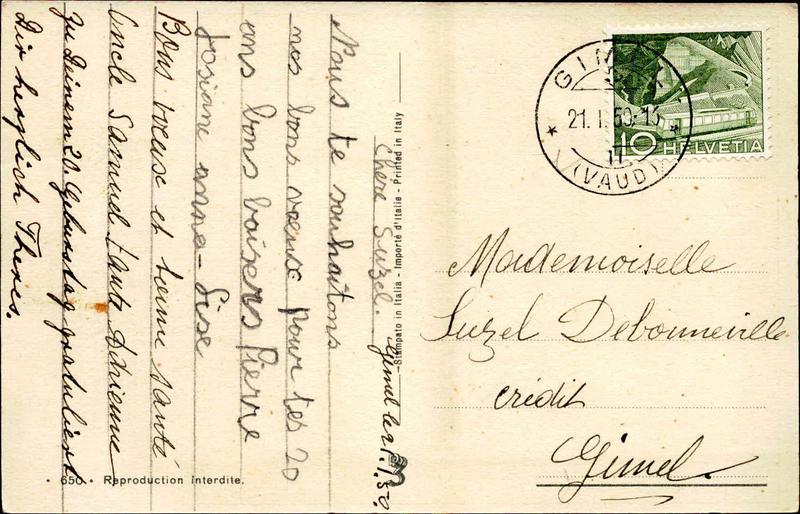 Chère Suzel. Gimel le 21.1.50.
Nous te souhaitons
nos bons vœuse pour tes 20
ans bons baisers Pierre
Josiane anne-Lise
Bons vœuse et bonne santé
Oncle Samuel tante Adrienne
Zu Deinem 20. Geburstag gratuliert
Dir herzlich Theres.
650 • Reproduction interdite.
Stampato in Italia - Importé d'Italie - Printed in Italy
GIMEL
21. I. 50-13
(VAUD)
10 HELVETIA
Mademoiselle
Suzel Debonneville
crédit
Gimel.